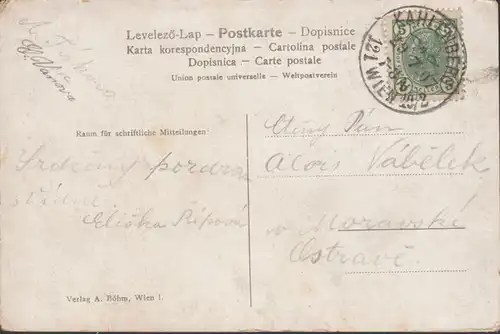 Levelező-Lap — Postkarte — Dopisnice
Karta korespondencyjna — Cartolina postale
Dopisnica — Carte postale
Union postale universelle — Weltpostverein
KAHLENBERG
WIEN 19/2
5
Raum für schriftliche Mitteilungen
Srdečný pozdrav
Eliška
Ctěný Pán
Alois Vábělek
v Moravské
Ostravě.
Verlag A. Böhm, Wien I.